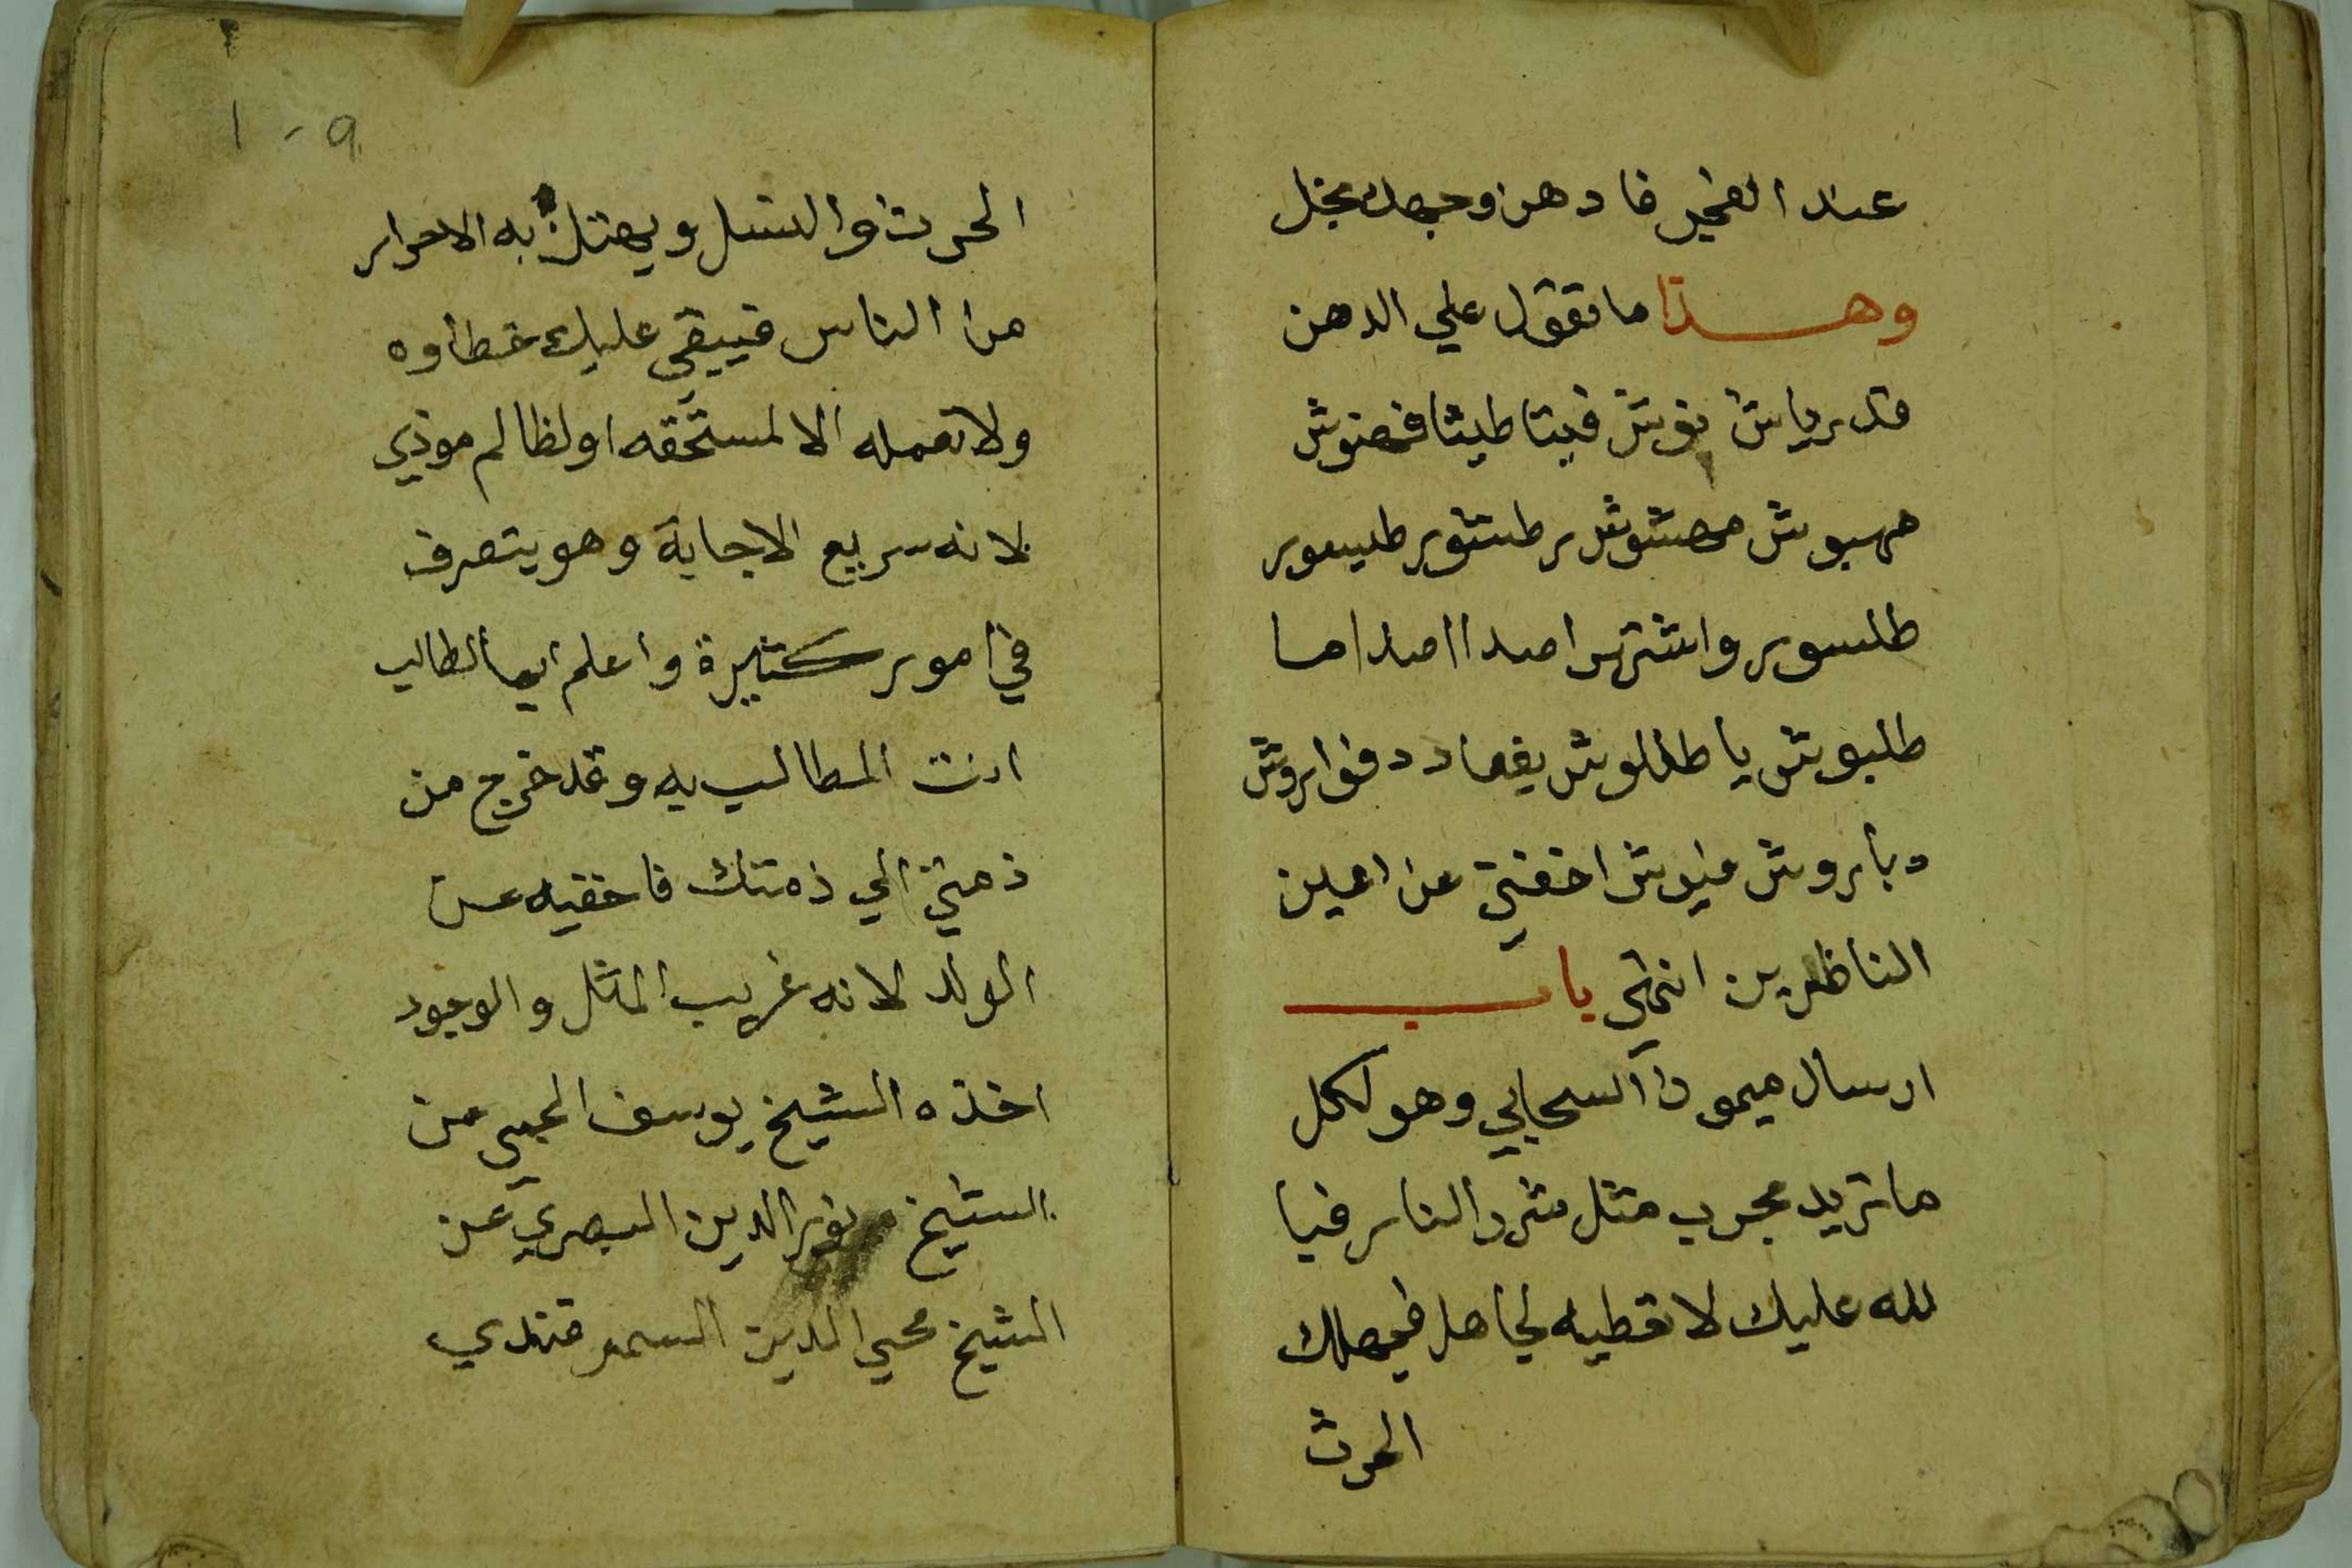 عند الفخير فادهن وجهك بخل
وهذا ما تقول علي الدهن
قدرياش نوش فيتا طيثا فهنوش
مهبوش مهشوش رطشور طيسور
طلسور واشتر امدا امدا ما
طلبوش يا طللوش يغعادد فوا يروش
دباروش ميوش اخفني عن اعين
الناظرين انتهي باب
ارسال ميمون السحابي وهو لكل
ما تريد مجرب مثل شرد النار فيا
لله عليك لا تعطيه لجاهل فيهلك
الحرث
١٠٩
الحرث والنسل ويهتك به الاحرار
من الناس فيبقي عليك خطاوه
ولا تعمله الا لمستحقه او لظالم موذي
لانه سريع الاجابة وهو يتصرف
في امور كثيرة واعلم ايها الطالب
انت المطالب به وقد خرج من
ذمتي الي ذمتك فاخفيه عن
الولد لانه غريب المثل والوجود
اخذه الشيخ يوسف العجمي من
الشيخ نور الدين البصري عن
الشيخ محي الدين السمرقندي